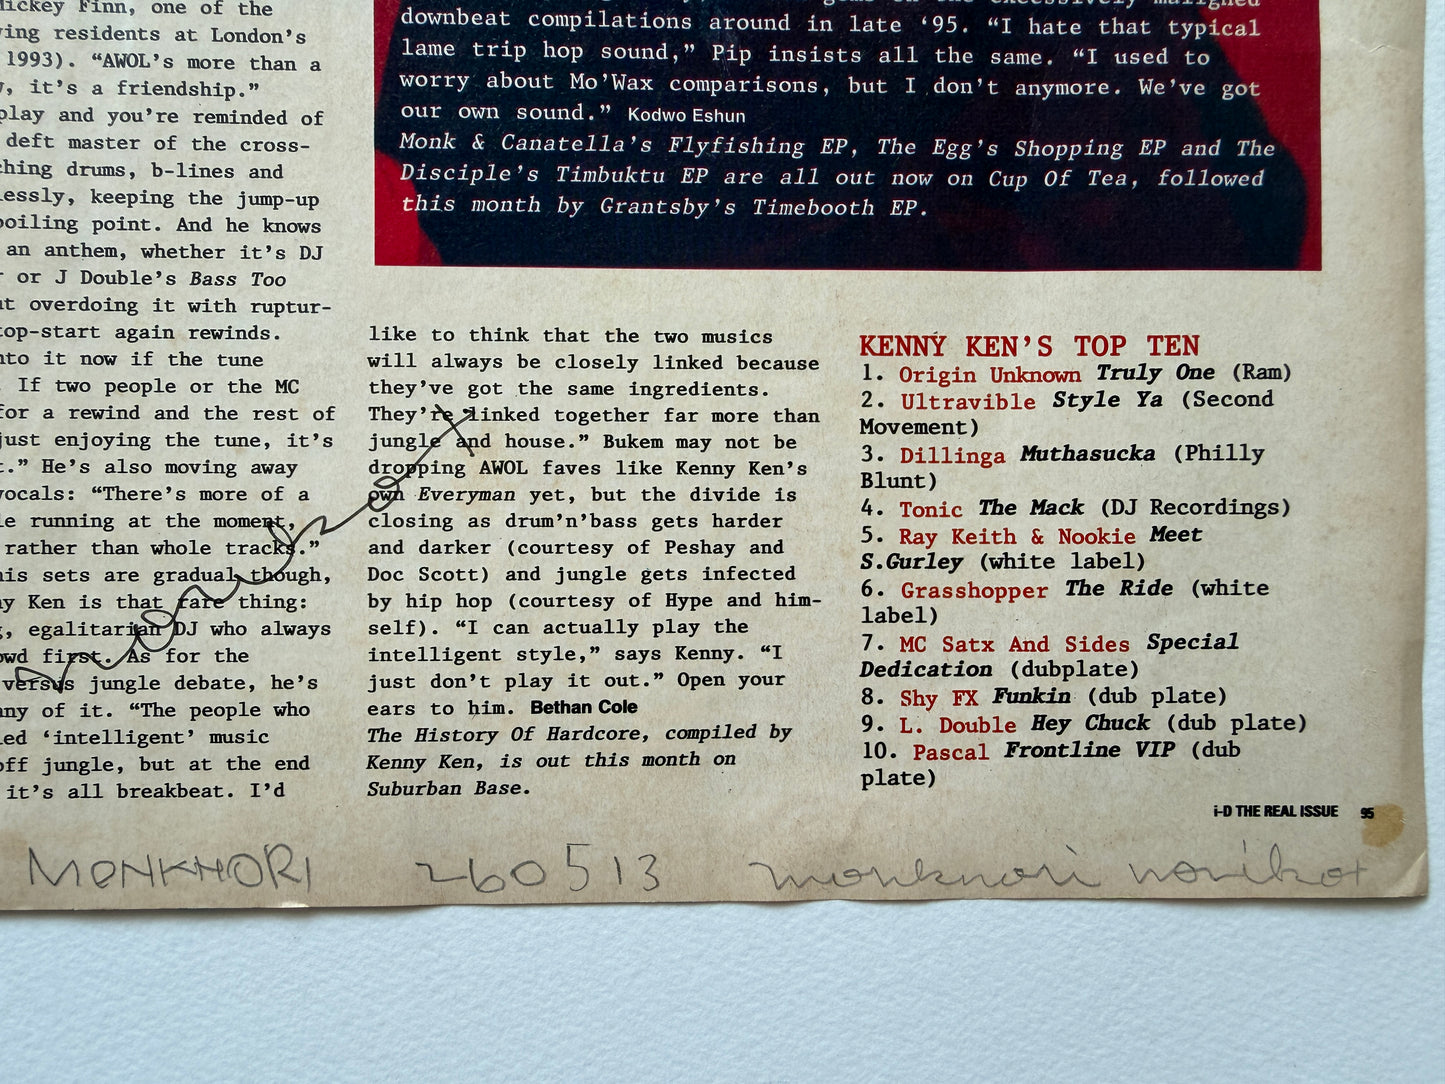 Mickey Finn, one of the
residents at London's
1993). “AWOL's more than a
it's a friendship.”
play and you're reminded of
deft master of the cross-
drums, b-lines and
keeping the jump-up
boiling point. And he knows
an anthem, whether it's DJ
or J Double's Bass Too
overdoing it with ruptur-
again rewinds.
it now if the tune
If two people or the MC
for a rewind and the rest of
just enjoying the tune, it's
He's also moving away
vocals: “There's more of a
running at the moment,
rather than whole tracks.”
his sets are gradual though,
Ken is that rare thing:
egalitarian DJ who always
first. As for the
versus jungle debate, he's
any of it. “The people who
‘intelligent’ music
off jungle, but at the end
it's all breakbeat. I'd
downbeat compilations around in late ‘95. “I hate that typical
lame trip hop sound,” Pip insists all the same. “I used to
worry about Mo'Wax comparisons, but I don't anymore. We've got
our own sound.” Kodwo Eshun
Monk & Canatella's Flyfishing EP, The Egg's Shopping EP and The
Disciple's Timbuktu EP are all out now on Cup Of Tea, followed
this month by Grantsby's Timebooth EP.
like to think that the two musics
will always be closely linked because
they've got the same ingredients.
They're linked together far more than
jungle and house.” Bukem may not be
dropping AWOL faves like Kenny Ken's
own Everyman yet, but the divide is
closing as drum'n'bass gets harder
and darker (courtesy of Peshay and
Doc Scott) and jungle gets infected
by hip hop (courtesy of Hype and him-
self). “I can actually play the
intelligent style,” says Kenny. “I
just don't play it out.” Open your
ears to him. Bethan Cole
The History Of Hardcore, compiled by
Kenny Ken, is out this month on
Suburban Base.
KENNY KEN'S TOP TEN
1. Origin Unknown Truly One (Ram)
2. Ultravible Style Ya (Second
Movement)
3. Dillinga Muthasucka (Philly
Blunt)
4. Tonic The Mack (DJ Recordings)
5. Ray Keith & Nookie Meet
S.Gurley (white label)
6. Grasshopper The Ride (white
label)
7. MC Satx And Sides Special
Dedication (dubplate)
8. Shy FX Funkin (dub plate)
9. L. Double Hey Chuck (dub plate)
10. Pascal Frontline VIP (dub
plate)
i-D THE REAL ISSUE 95
MONKHORI 260513 monknori norikot